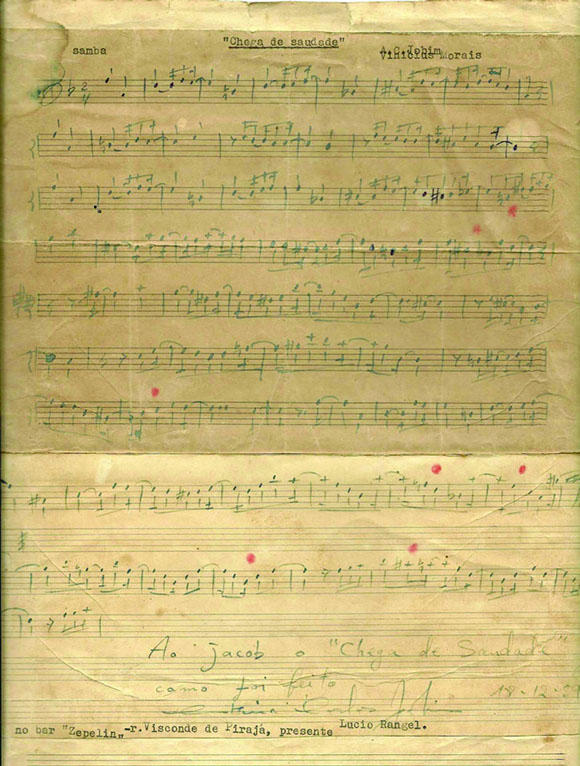 "Chega de saudade"
samba
A.C.Jobim
Vinicius Morais
Ao Jacob o "Chega de Saudade"
como foi feito
Antonio Carlos Jobim 18-12-59
no bar "Zepelin„ -r.Visconde de Pirajá, presente Lucio Rangel.